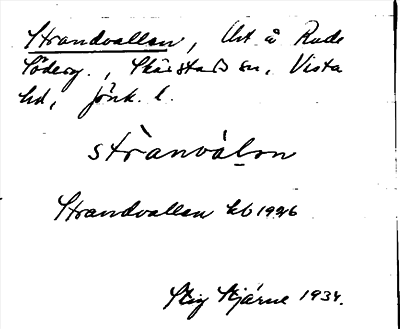 Strandvallen, Urt å Rude
Söderg., Skärstads sn, Vista
hd, Jönk. l.
strànválәn
Strandvallen kb 1926
Stig Stjärne 1934.